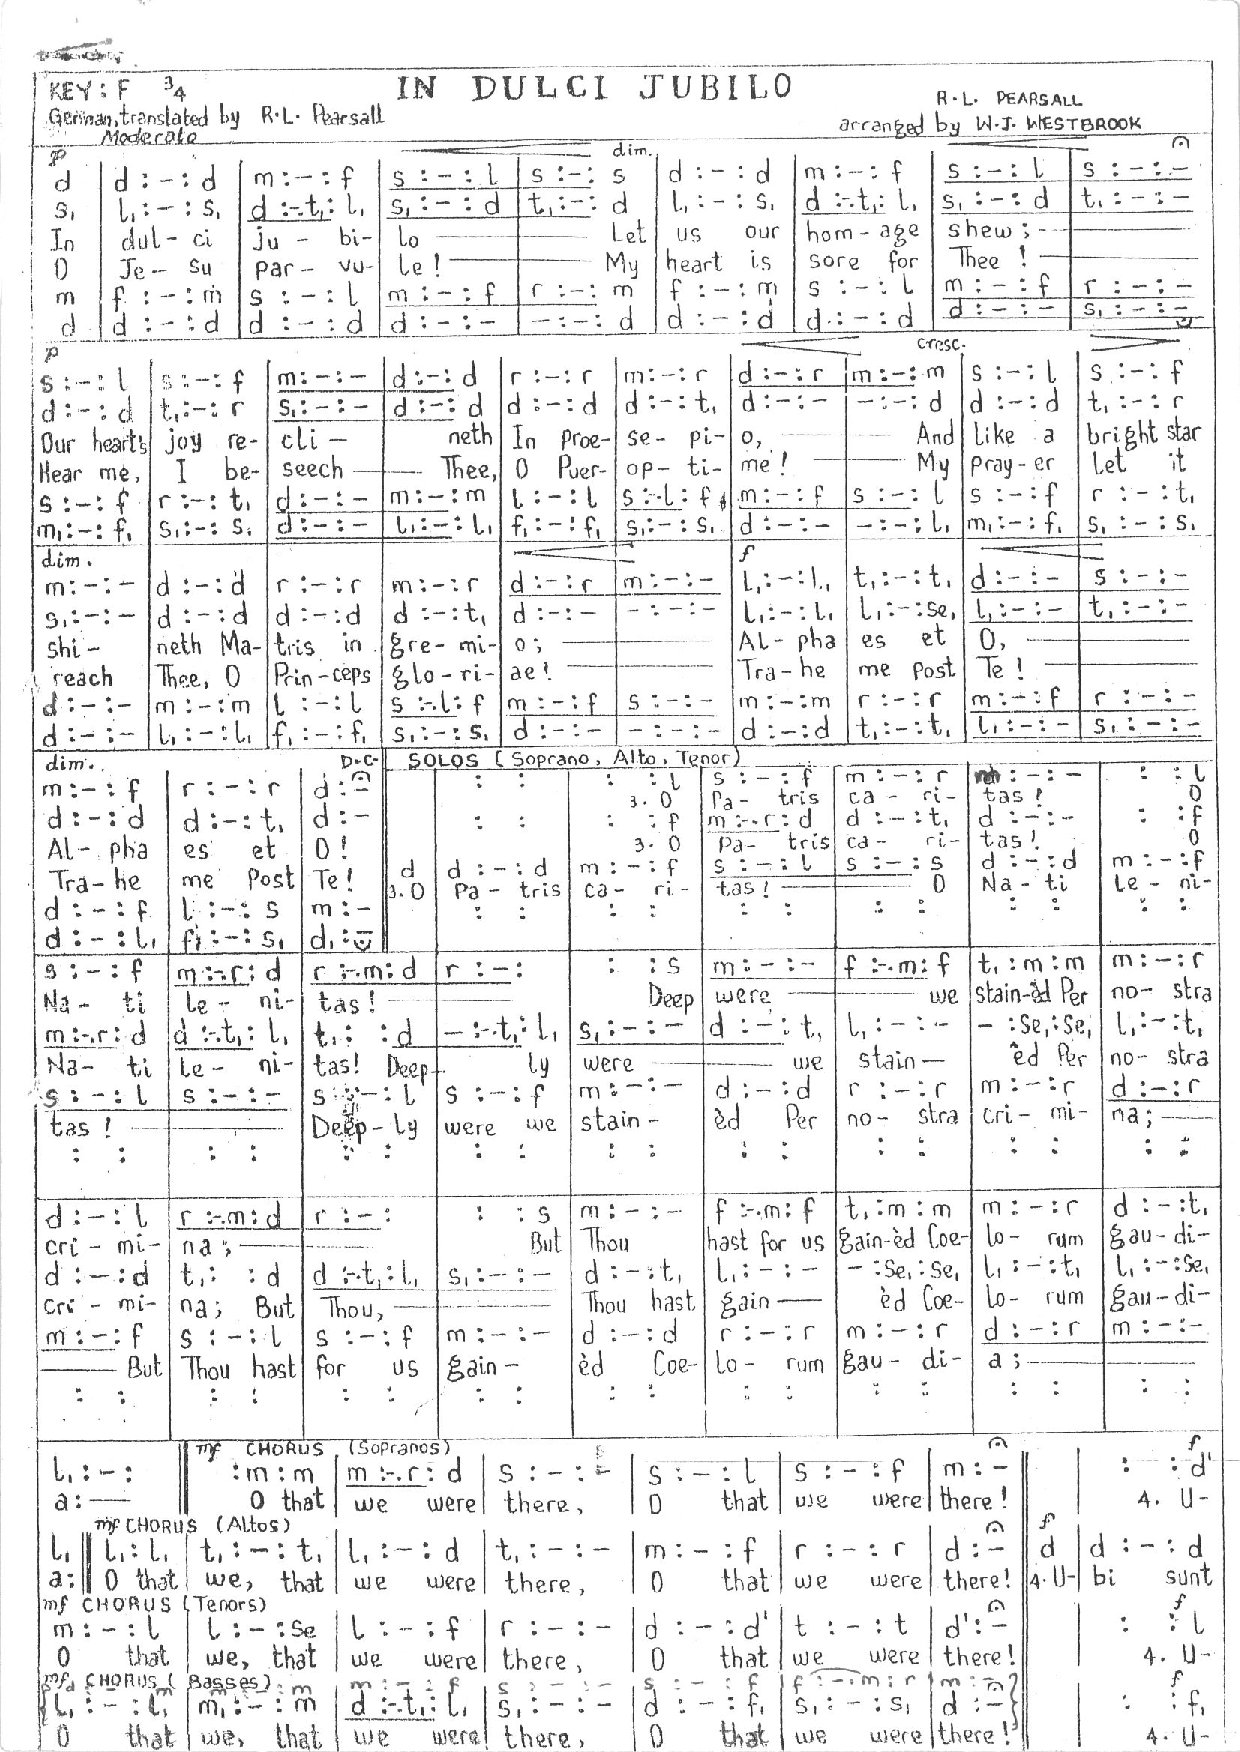 IN DULCI JUBILO
KEY: F 3/4
R.L. PEARSALL
German, translated by R.L. Pearsall
arranged by W.J. WESTBROOK
Moderato
p dim.
d | d :-: d | m :-: f | s :-: l | s :-: s | d :-: d | m :-: f | s :-: l | s :-:-
s, | l, :-: s, | d :-.t,: l, | s, :-: d | t, :-: d | l, :-: s, | d :-.t,: l, | s, :-: d | t, :-:-
In | dul- ci | ju - bi- | lo Let | us our | hom-age | shew;
O | Je- su | par- vu- | le! My | heart is | sore for | Thee!
m | f :-: m | s :-: l | m :-: f | r :-: m | f :-: m | s :-: l | m :-: f | r :-:-
d | d :-: d | d :-: d | d :-:- | -:-: d | d :-: d | d :-: d | d :-:- | s, :-:-
p cresc.
s :-: l | s :-: f | m :-:- | d :-: d | r :-: r | m :-: r | d :-: r | m :-: m | s :-: l | s :-: f
d :-: d | t, :-: r | s, :-:- | d :-: d | d :-: d | d :-: t, | d :-:- | -:-: d | d :-: d | t, :-: r
Our hearts | joy re- | cli - | neth | In Proe- | se- pi- | o, | And | like a | bright star
Hear me, | I be- | seech | Thee, | O Puer- | op- ti- | me! | My | pray-er | let it
s :-: f | r :-: t, | d :-:- | m :-: m | l :-: l | s :-.l: f | m :-: f | s :-: l | s :-: f | r :-: t,
m, :-: f, | s, :-: s, | d :-:- | l, :-: l, | f, :-: f, | s, :-: s, | d :-:- | -:-: l, | m, :-: f, | s, :-: s,
dim. f
m :-:- | d :-: d | r :-: r | m :-: r | d :-: r | m :-:- | l, :-: l, | t, :-: t, | d :-:- | s :-:-
s, :-:- | d :-: d | d :-: d | d :-: t, | d :-:- | -:-:- | l, :-: l, | l, :-: se, | l, :-:- | t, :-:-
shi- | neth Ma- | tris in | gre- mi- | o; | Al- pha | es et | O,
reach | Thee, O | Prin-ceps | glo- ri- | ae! | Tra-he | me Post | Te!
d :-:- | m :-: m | l :-: l | s :-.l: f | m :-: f | s :-:- | m :-: m | r :-: r | m :-: f | r :-:-
d :-:- | l, :-: l, | f, :-: f, | s, :-: s, | d :-:- | -:-:- | d :-: d | t, :-: t, | l, :-:- | s, :-:-
dim. D.C. SOLOS (Soprano, Alto, Tenor)
m :-: f | r :-: r | d :- || : : | : : l | s :-: f | m :-: r | :-:- | : : l
3. O | Pa- tris | ca- ri- | tas! | O
d :-: d | d :-: t, | d :- || : : | : : f | m :-.r: d | d :-: t, | d :-:- | : : f
Al- pha | es et | O! || 3. O | Pa- tris | ca- ri- | tas! | O
Tra-he | me Post | Te! || d | d :-: d | m :-: f | s :-: l | s :-: s | d :-: d | m :-: f
3. O | Pa- tris | ca- ri- | tas! | O | Na- ti | le- ni-
d :-: f | l :-: s | m :- || : : | : : | : : | : : | : : | : :
d :-: l, | f, :-: s, | d, :-
s :-: f | m :-.r: d | r :-.m: d | r :-: | : : s | m :-:- | f :-.m: f | t, : m : m | m :-: r
Na- ti | le- ni- | tas! | Deep | were | we | stain-èd Per | no- stra
m :-.r: d | d :-.t,: l, | t, : : d | -:-.t,: l, | s, :-:- | d :-: t, | l, :-:- | - : se, : se, | l, :-: t,
Na- ti | le- ni- | tas! Deep- | ly | were | we | stain- | èd Per | no- stra
s :-: l | s :-:- | s :-: l | s :-: f | m :-:- | d :-: d | r :-: r | m :-: r | d :-: r
tas! | Deep-ly | were we | stain- | èd Per | no- stra | cri- mi- | na;
: : | : : | : : | : : | : : | : : | : : | : : | : :
d :-: l | r :-.m: d | r :-: | : : s | m :-:- | f :-.m: f | t, : m : m | m :-: r | d :-: t,
cri- mi- | na; | But | Thou | hast for us | gain-èd Coe- | lo- rum | gau-di-
d :-: d | t, : : d | d :-.t,: l, | s, :-:- | d :-: t, | l, :-:- | - : se, : se, | l, :-: t, | l, :-: se,
cri- mi- | na; But | Thou, | Thou hast | gain | èd Coe- | lo- rum | gau-di-
m :-: f | s :-: l | s :-: f | m :-:- | d :-: d | r :-: r | m :-: r | d :-: r | m :-:-
But | Thou hast | for us | gain- | èd Coe- | lo- rum | gau- di- | a;
: : | : : | : : | : : | : : | : : | : : | : : | : :
mf CHORUS (Sopranos) f
l, :-: || : m : m | m :-.r: d | s :-:- | s :-: l | s :-: f | m :- || : : d'
a: || O that | we were | there, | O that | we were | there! || 4. U-
mf CHORUS (Altos) f
l, || l, : l, | t, :-: t, | l, :-: d | t, :-:- | m :-: f | r :-: r | d :- || d | d :-: d
a: || O that | we, that | we were | there, | O that | we were | there! || 4. U- | bi sunt
mf CHORUS (Tenors) f
m :-: l | l :-: se | l :-: f | r :-:- | d :-: d' | t :-: t | d' :- || : : l
O that | we, that | we were | there, | O that | we were | there! || 4. U-
mf CHORUS (Basses) f
m | m | m :-: f | s :-:- | s :-: f | f :-.m: r | m :-
l, :-: l, | m, :-: m | d :-.t,: l, | s, :-:- | d :-: f, | s, :-: s, | d :- || : : f,
O that | we, that | we were | there, | O that | we were | there! || 4. U-